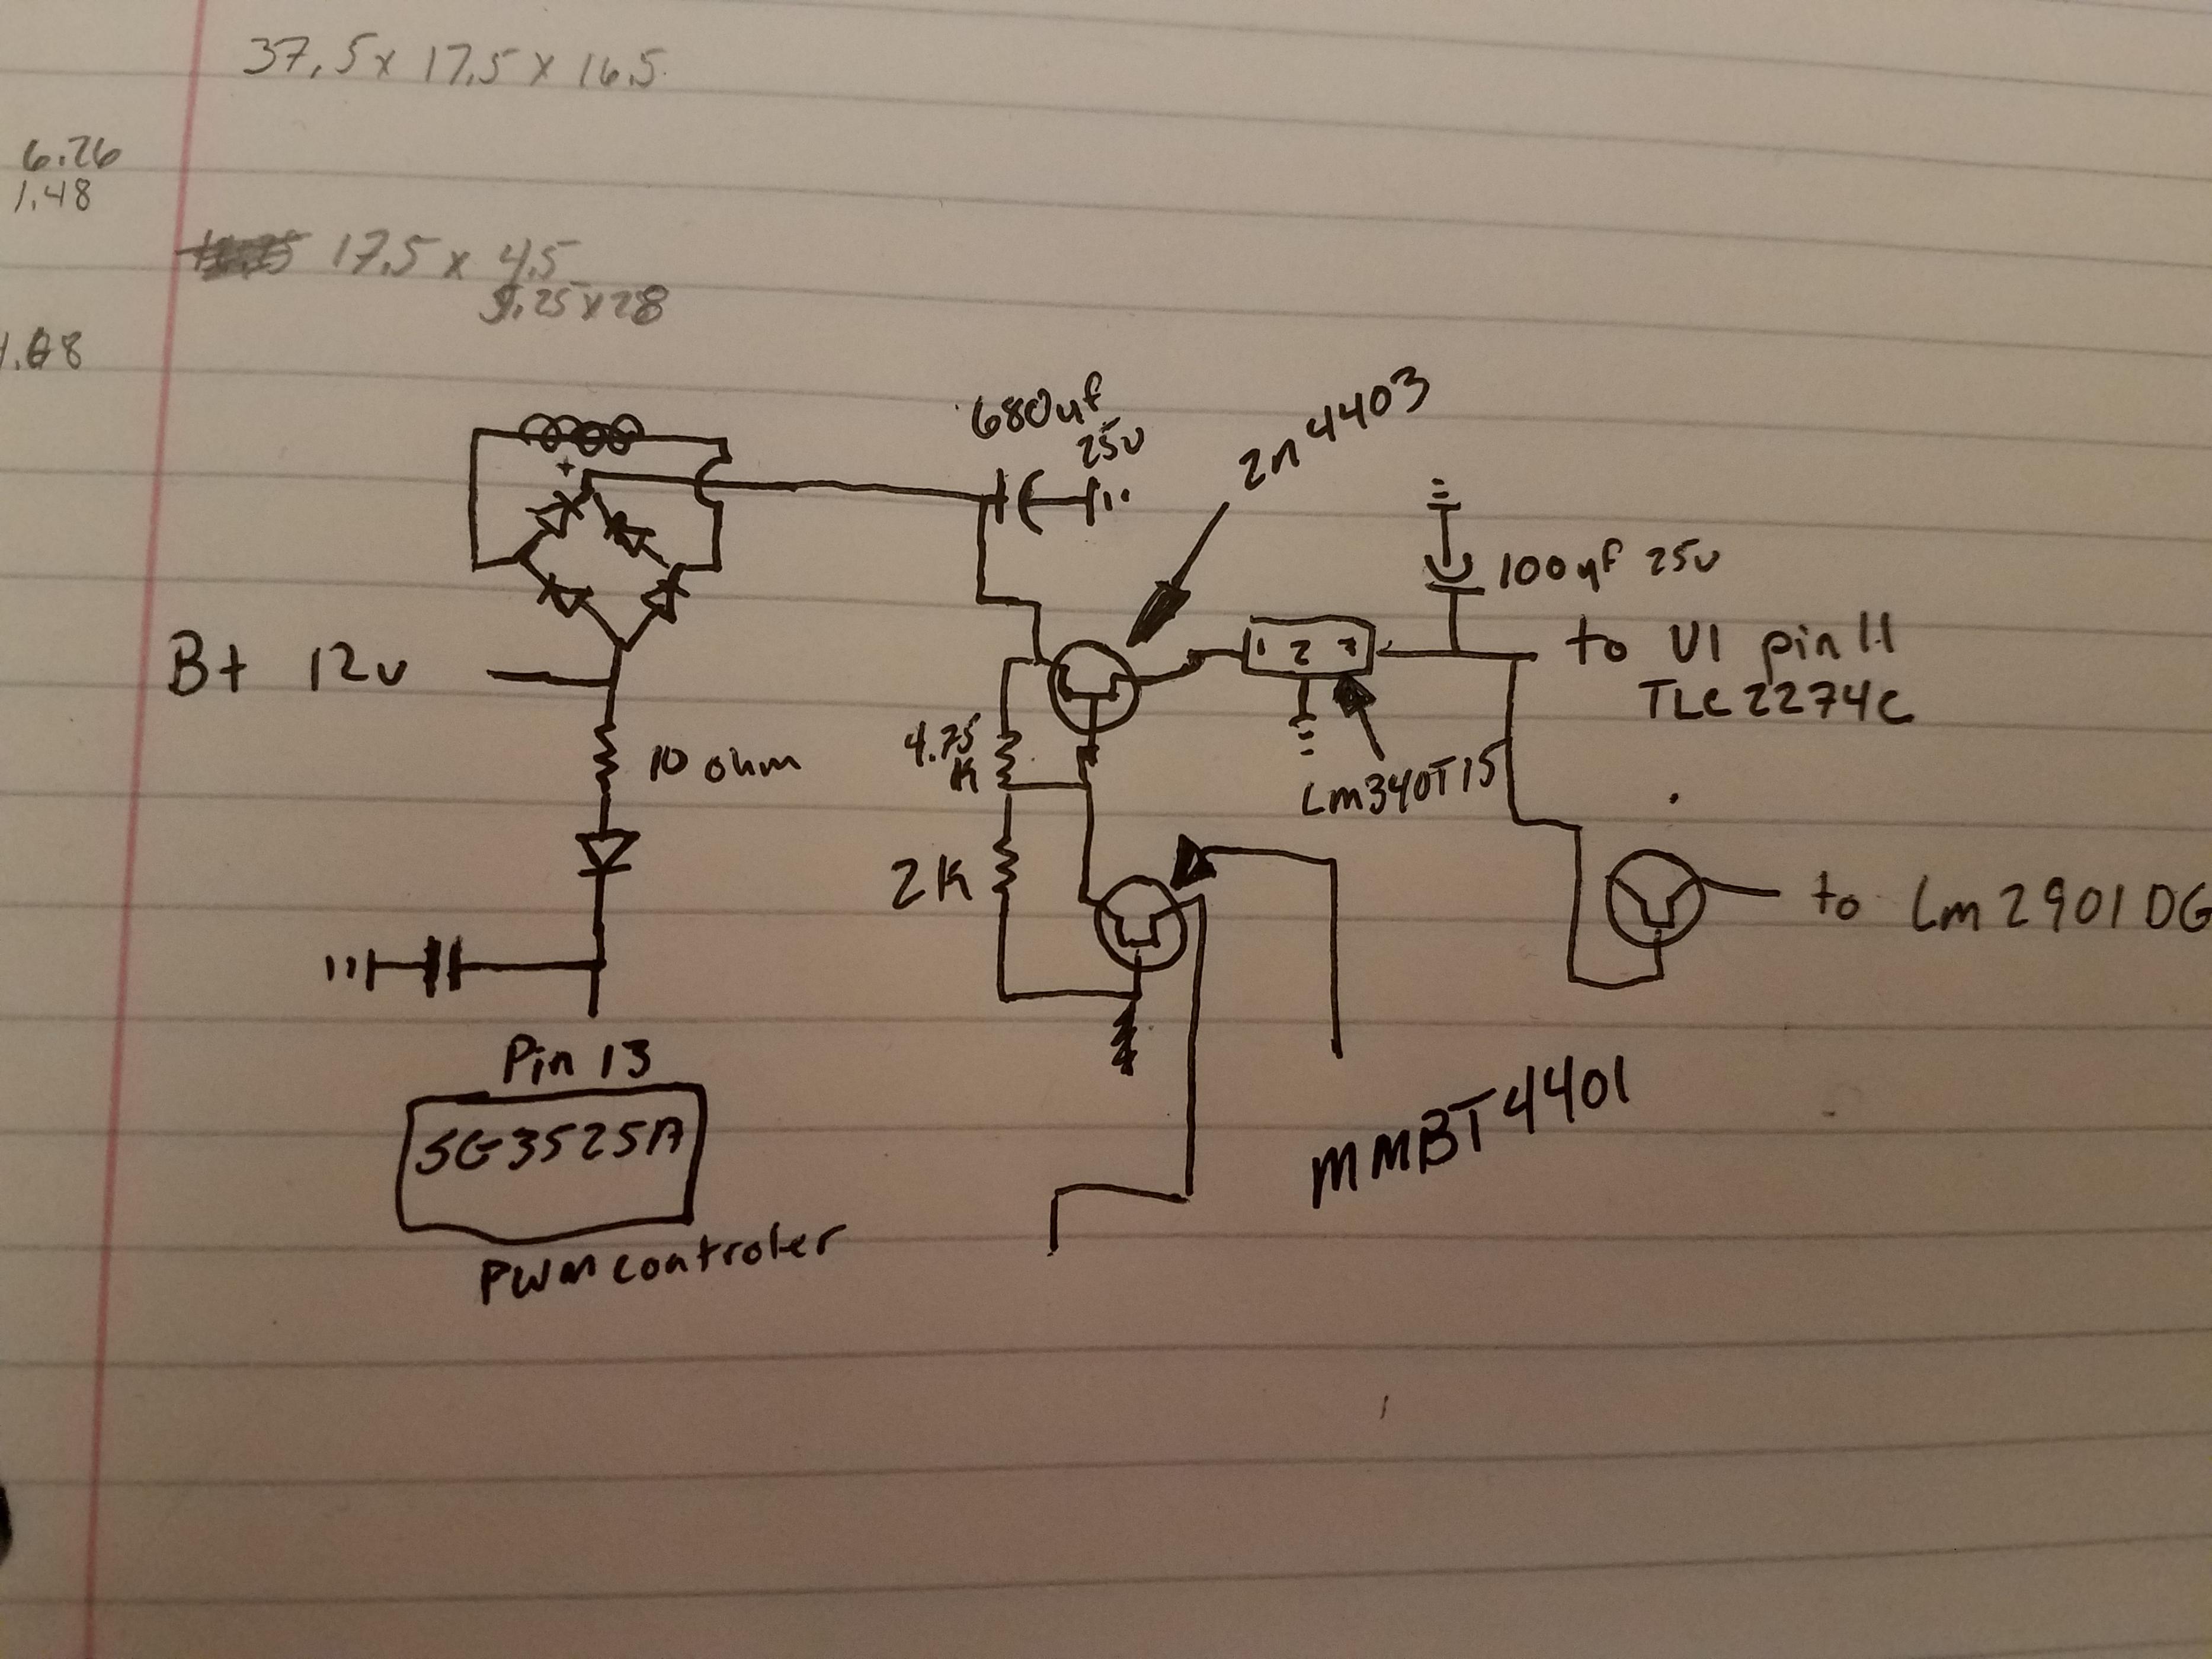 37.5 x 17.5 x 16.5
6.26
1.48
17.5 x 4.5
5.25 x 28
680uf
25v
2n4403
+
100uf 25v
B+ 12v
1 2 3
to U1 pin 11
TLC2274C
4.75
K
10 ohm
Lm340T15
2K
to Lm2901DG
Pin 13
SG3525A
MMBT4401
PWM controler